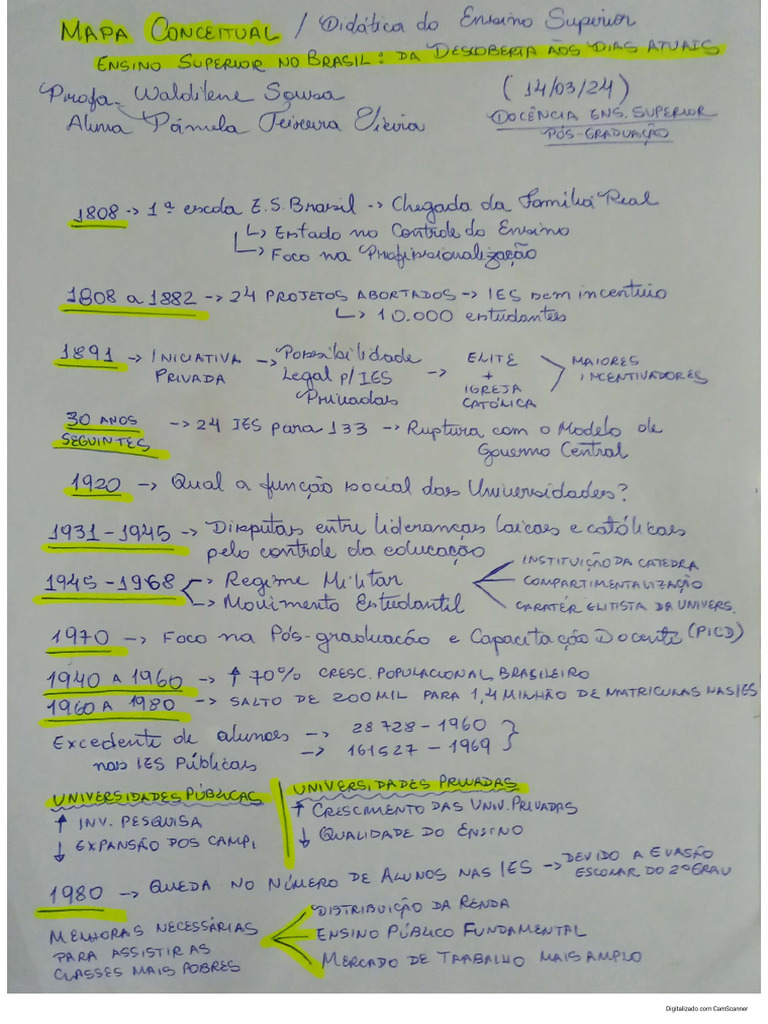 MAPA CONCEITUAL / Didática do Ensino Superior
ENSINO SUPERIOR NO BRASIL: DA DESCOBERTA AOS DIAS ATUAIS
Profa. Waldilene Sousa (14/03/24)
Aluna Pâmela Teixeira Vieira DOCÊNCIA ENS. SUPERIOR
PÓS-GRADUAÇÃO
1808 → 1ª escola E.S. Brasil → Chegada da Família Real
↳ Estado no Controle do Ensino
↳ Foco na Profissionalização
1808 a 1882 → 24 PROJETOS ABORTADOS → IES sem incentivo
↳ 10.000 estudantes
1891 → INICIATIVA PRIVADA → Possibilidade Legal p/ IES Privadas → ELITE + IGREJA CATÓLICA > MAIORES INCENTIVADORES
30 ANOS SEGUINTES → 24 IES para 133 → Ruptura com o Modelo de
Governo Central
1920 → Qual a função social das Universidades?
1931 - 1945 → Disputas entre lideranças laicas e católicas
pelo controle da educação
1945 - 1968 → Regime Militar
→ Movimento Estudantil
INSTITUIÇÃO DA CATEDRA
COMPARTIMENTALIZAÇÃO
CARATÉR ELITISTA DA UNIVERS.
1970 → Foco na Pós-graduação e Capacitação Docente (PICD)
1940 A 1960 → ↑ 70% CRESC. POPULACIONAL BRASILEIRO
1960 A 1980 → SALTO DE 200 MIL PARA 1,4 MINHÃO DE MATRICULAS NAS IES
Excedente de alunos → 28728 - 1960
nas IES Públicas → 161527 - 1969
UNIVERSIDADES PÚBLICAS
↑ INV. PESQUISA
↓ EXPANSÃO DOS CAMPI
UNIVERSIDADES PRIVADAS
↑ CRESCIMENTO DAS UNIV. PRIVADAS
↓ QUALIDADE DO ENSINO
1980 → QUEDA NO NÚMERO DE ALUNOS NAS IES → DEVIDO A EVASÃO
ESCOLAR DO 2º GRAU
MELHORAS NECESSÁRIAS
PARA ASSISTIR AS
CLASSES MAIS POBRES
DISTRIBUIÇÃO DA RENDA
ENSINO PÚBLICO FUNDAMENTAL
MERCADO DE TRABALHO MAIS AMPLO
Digitalizado com CamScanner